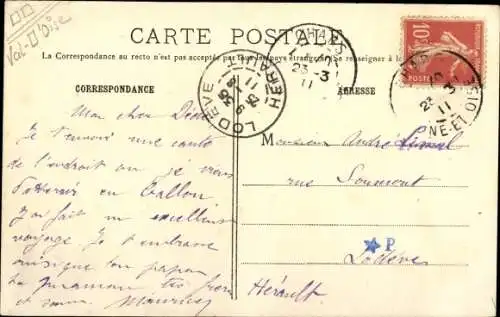 Val-D'Oise
CARTE POSTALE
La Correspondance au recto n'est pas acceptée par tous les pays étrangers. Se renseigner à la
CORRESPONDANCE
ADRESSE
Mon cher
Je t'envoie une carte
de l'endroit où je viens
d'atterrir en Ballon.
J'ai fait un excellent
voyage. Je t'embrasse
ainsi que ton papa
ta maman tes
et Maurice
Monsieur André
rue
P
Lodève
Hérault
LODÈVE
HÉRAULT
23 -3
11
23 3
11
NE-ET-OISE
10